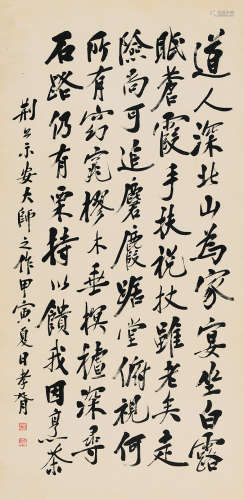 道人深北山為家宴坐白露
眠蒼霞手扶𣏌杖雖老矣走
險尚可追麏麚踞堂俯視何
所有窈窕樛木垂榠樝深尋
石路仍有栗持以饋我因烹茶
荊公示安大師之作甲寅夏日孝胥